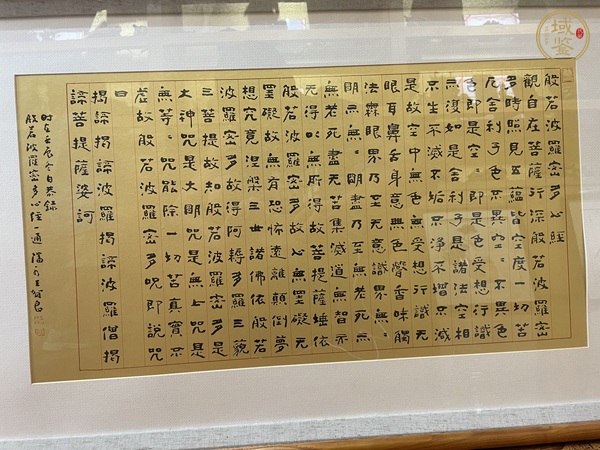 般若波羅密多心經
觀自在菩薩行深般若波羅密
多時照見五蘊皆空度一切苦
厄舍利子色不異空空不異色
色即是空空即是色受想行識
亦復如是舍利子是諸法空相
不生不滅不垢不淨不增不減
是故空中無色無受想行識无
眼耳鼻舌身意無色聲香味觸
法無眼界乃至无意識界無无
明亦無無明盡乃至無老死亦
無老死盡无苦集滅道無智亦
无得以無所得故菩提薩埵依
般若波羅密多故心無罣礙无
罣礙故無有恐怖遠離顛倒夢
想究竟涅槃三世諸佛依般若
波羅密多故得阿耨多羅三藐
三菩提故知般若波羅密多是
大神呪是大明呪是無上呪是
無等等呪能除一切苦真實不
虛故般若波羅密多呪即說呪
曰
揭諦揭諦波羅揭諦波羅僧揭
諦菩提薩婆訶
時在壬辰冬日恭錄
般若波羅密多心經一通
域鉴